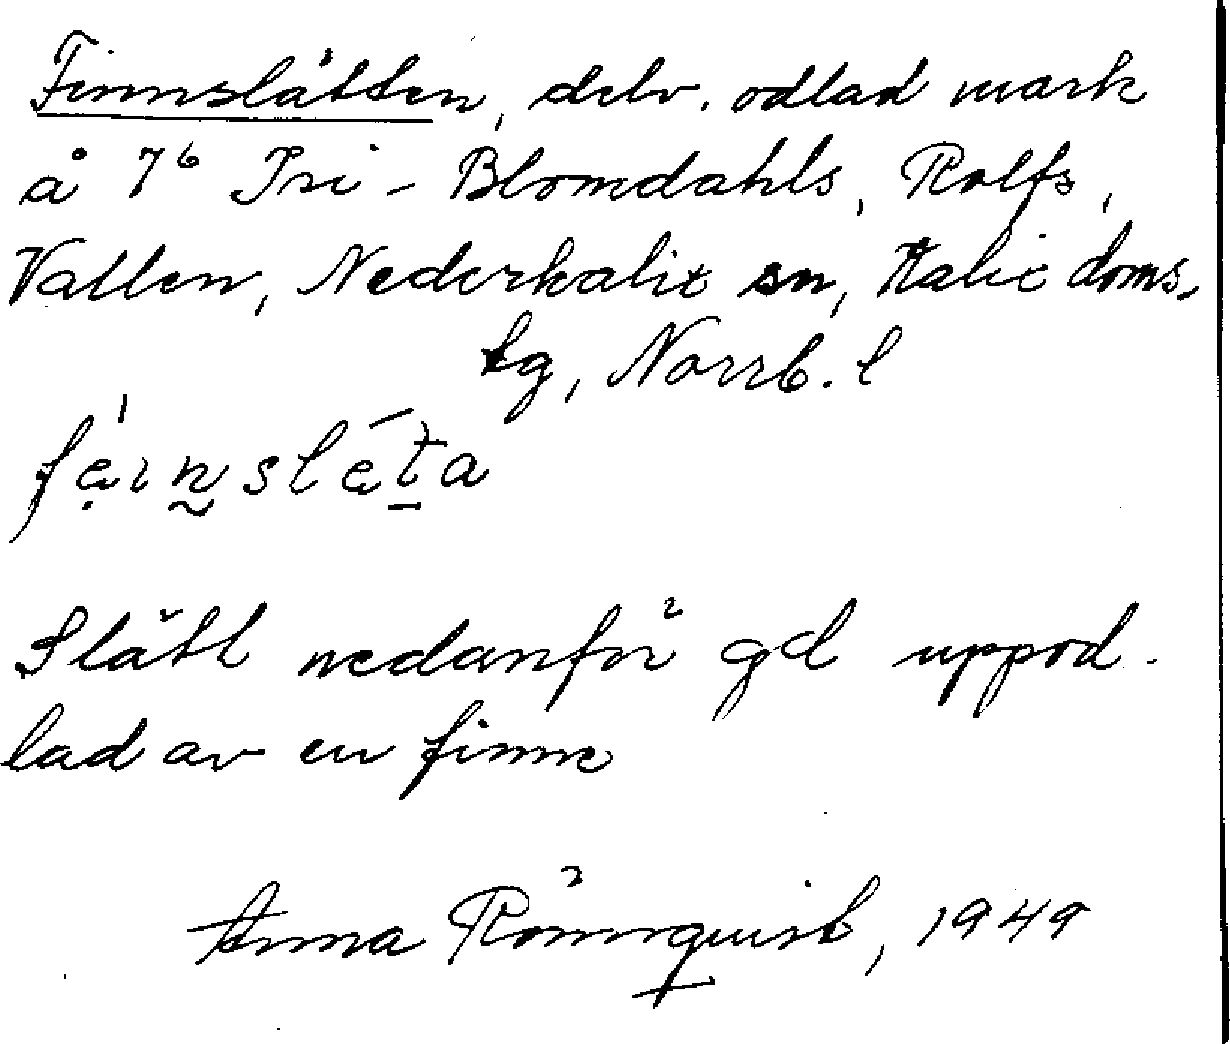 Finnslåtten, delv. odlad mark
å 7⁶ Pri - Blomdahls, Rolfs,
Vallen, Nederkalix sn, Kalix doms.
tg, Norrb. l
Slått nedanför gd uppod-
lad av en finne
Anna Rönnquist, 1949